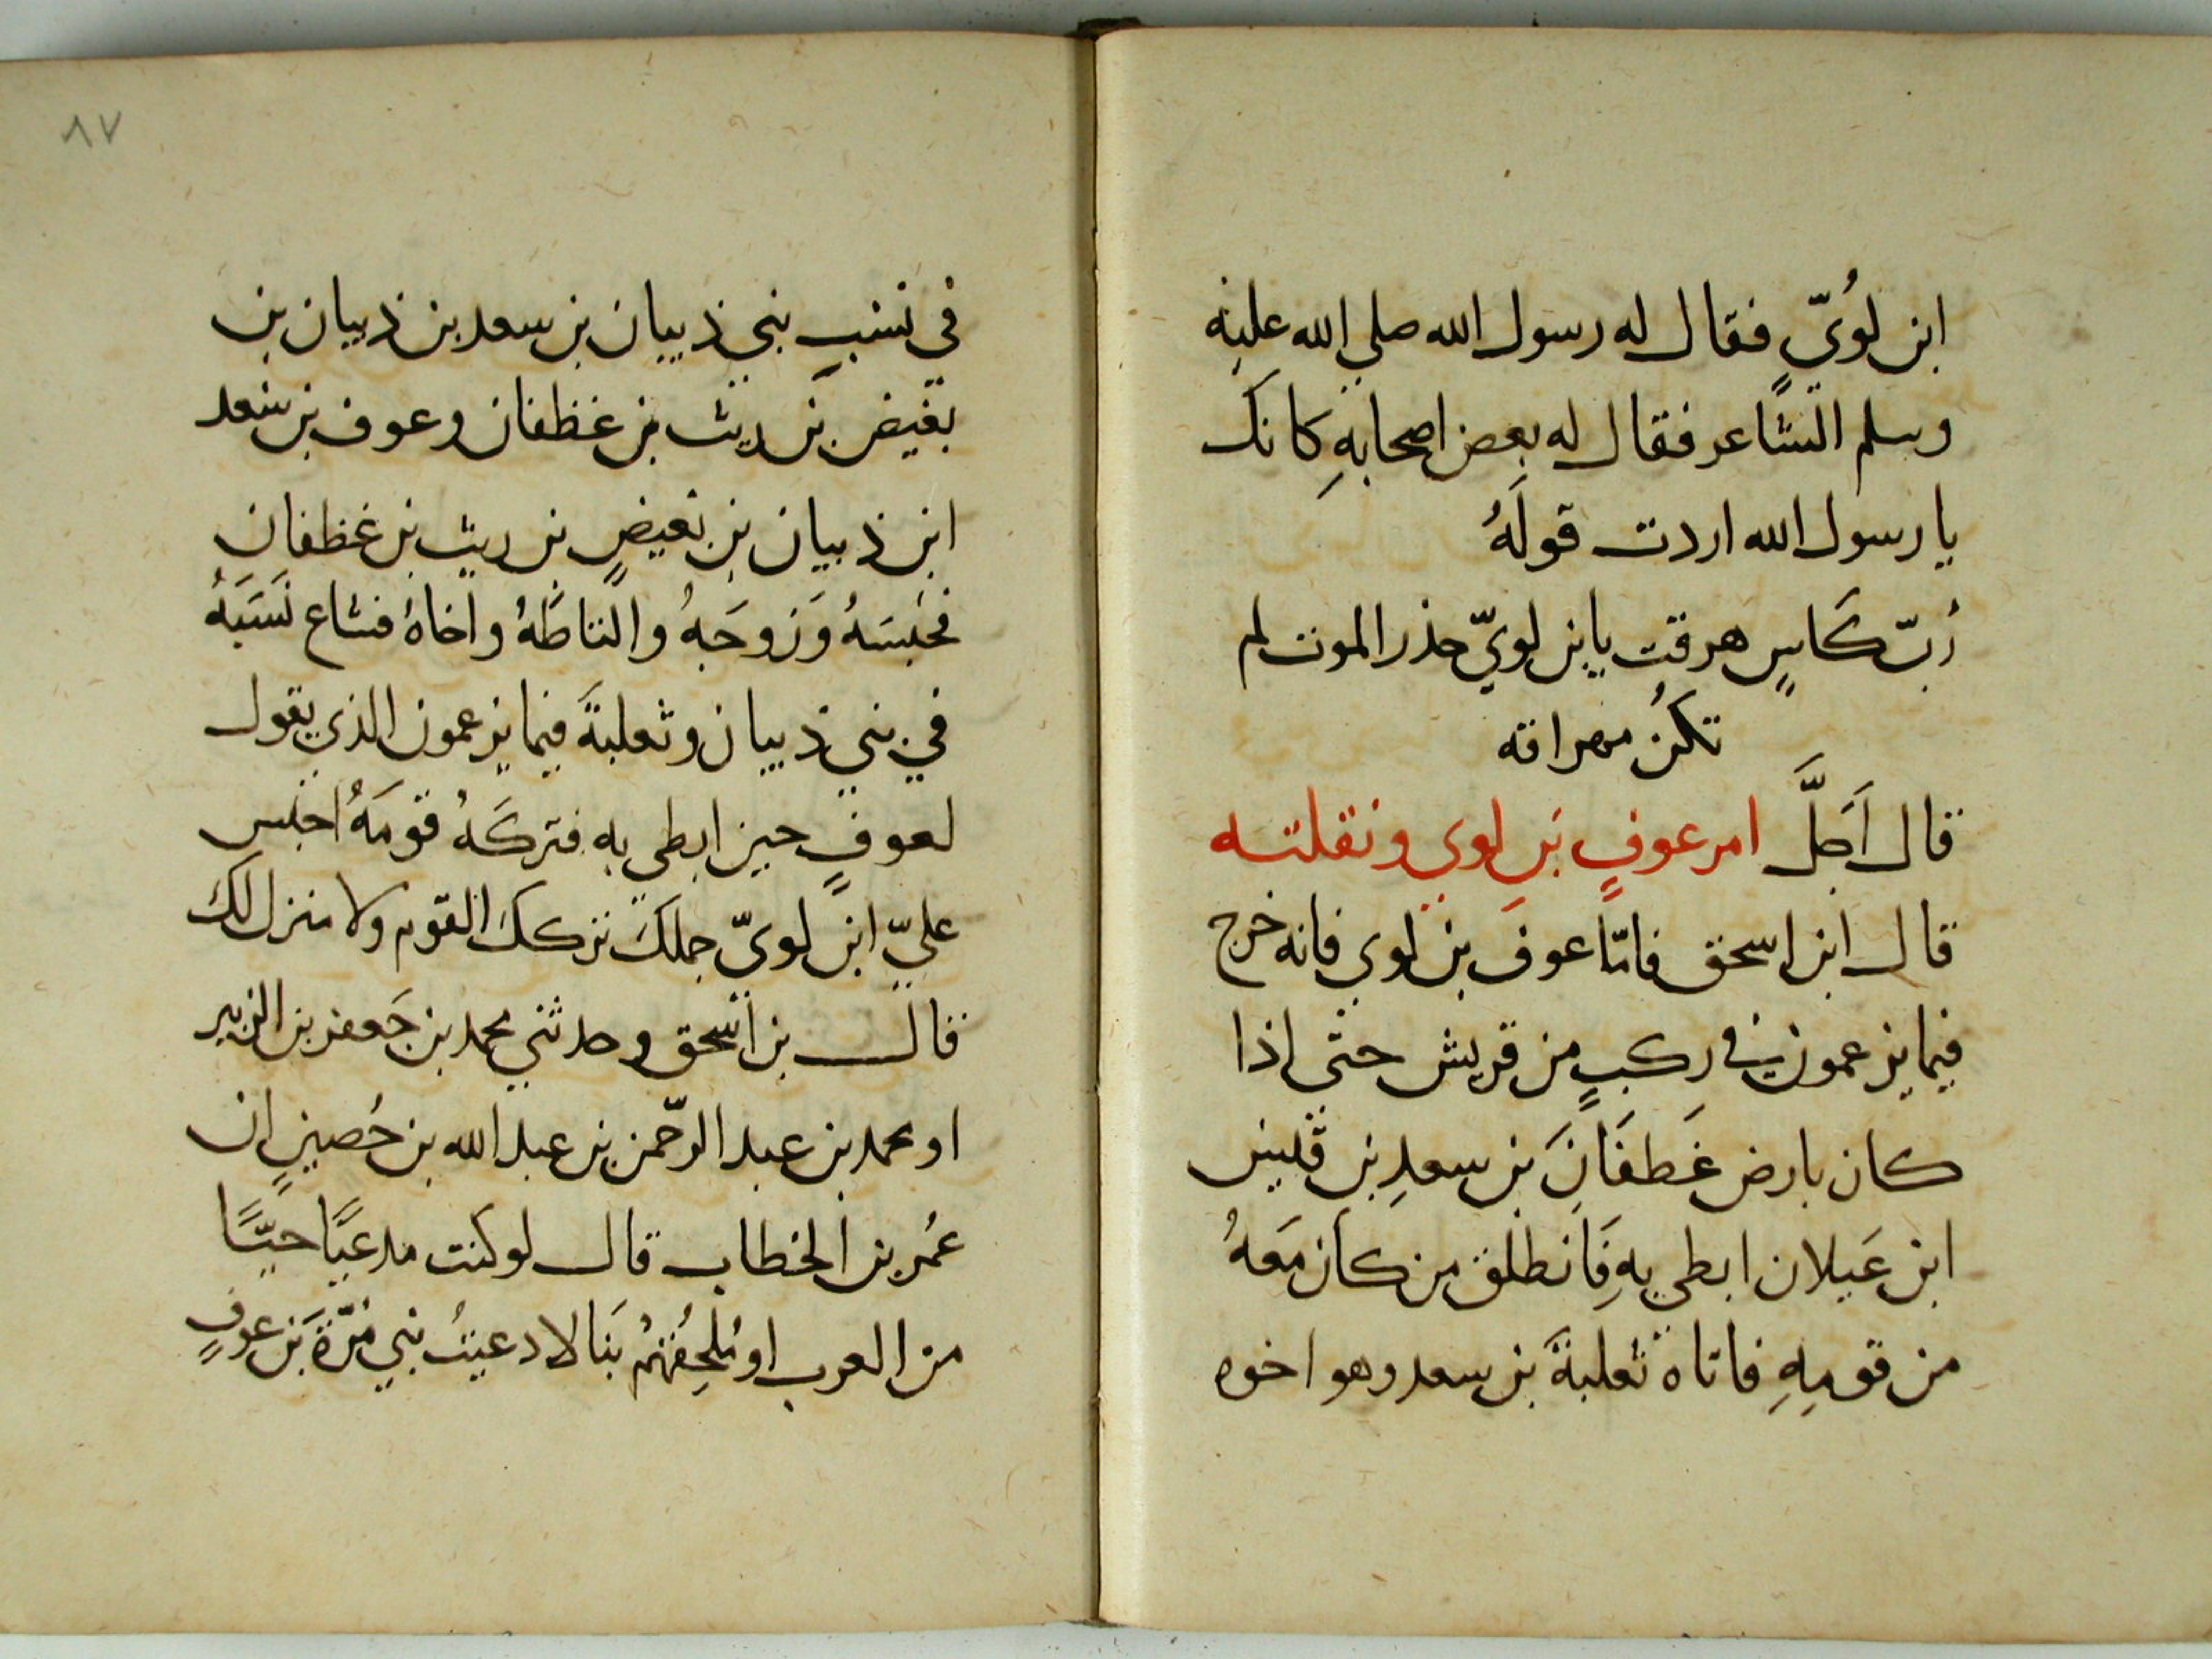 ابن لُويّ فقال له رسول الله صلي الله عليه
وسلم الشاعر فقال له بعض اصحابهِ كانك
يا رسول الله اردت قولَهُ
رُبّ كَاسٍ هرقت يابن لويّ حذر الموت لم
تكنُ مهراقه
قال اَجَلَّ امر عوفٍ بَنِ لوي ونقلته
قال ابن اسحق فامّا عوفَ بن لوي فانه خرج
فيما يزعمون في ركبٍ من قريش حتى اذا
كان بارض غَطفَانَ بن سعدِ بن قيس
ابن عَيلان ابطي بهِ فَانطلق من كان مَعهُ
من قومِهِ فاتاه ثعلبةَ بن سعد وهو اخوه
٨٧
في نسَبِ بني ذبيان بن سعد بن ذبيان بن
بغيض بَن ريث بن غظفان وعوف بن سعد
ابن ذبيان بن بغيضٍ بن ريث بن غظفان
فحبَسَهُ وَزوجَهُ والتاطَهُ واخاهُ فشاع نَسَبَهُ
في بني ذبيان وثعلبةَ فيما يزعمون الذي يقول
لعوفٍ حين ابطي به فتركَهُ قومَهُ احبس
عليّ ابن لويّ جملكَ تركك القوم ولا منزل لك
قال بن اسحق وحدثني محمد بن جَعفر بن الزبير
او محمد بن عبد الرّحمن بن عبد الله بن حُصينٍ ان
عُمر بن الخطاب قال لو كنت مدعيًا حيًّا
من العرب او مُلحِقُهُمُ بَنا لادعيتُ بني مُرّةَ بَن عوفٍ